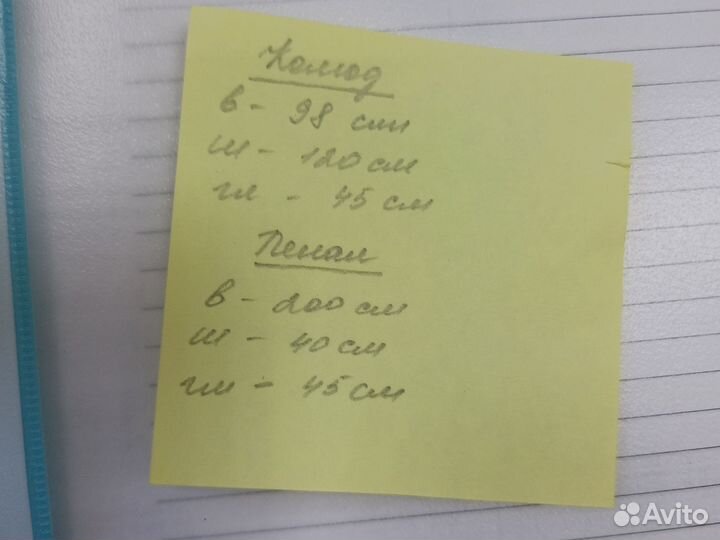 Комод
в - 98 см
ш - 120 см
гл - 45 см
Пенал
в - 200 см
ш - 40 см
гл - 45 см
Avito